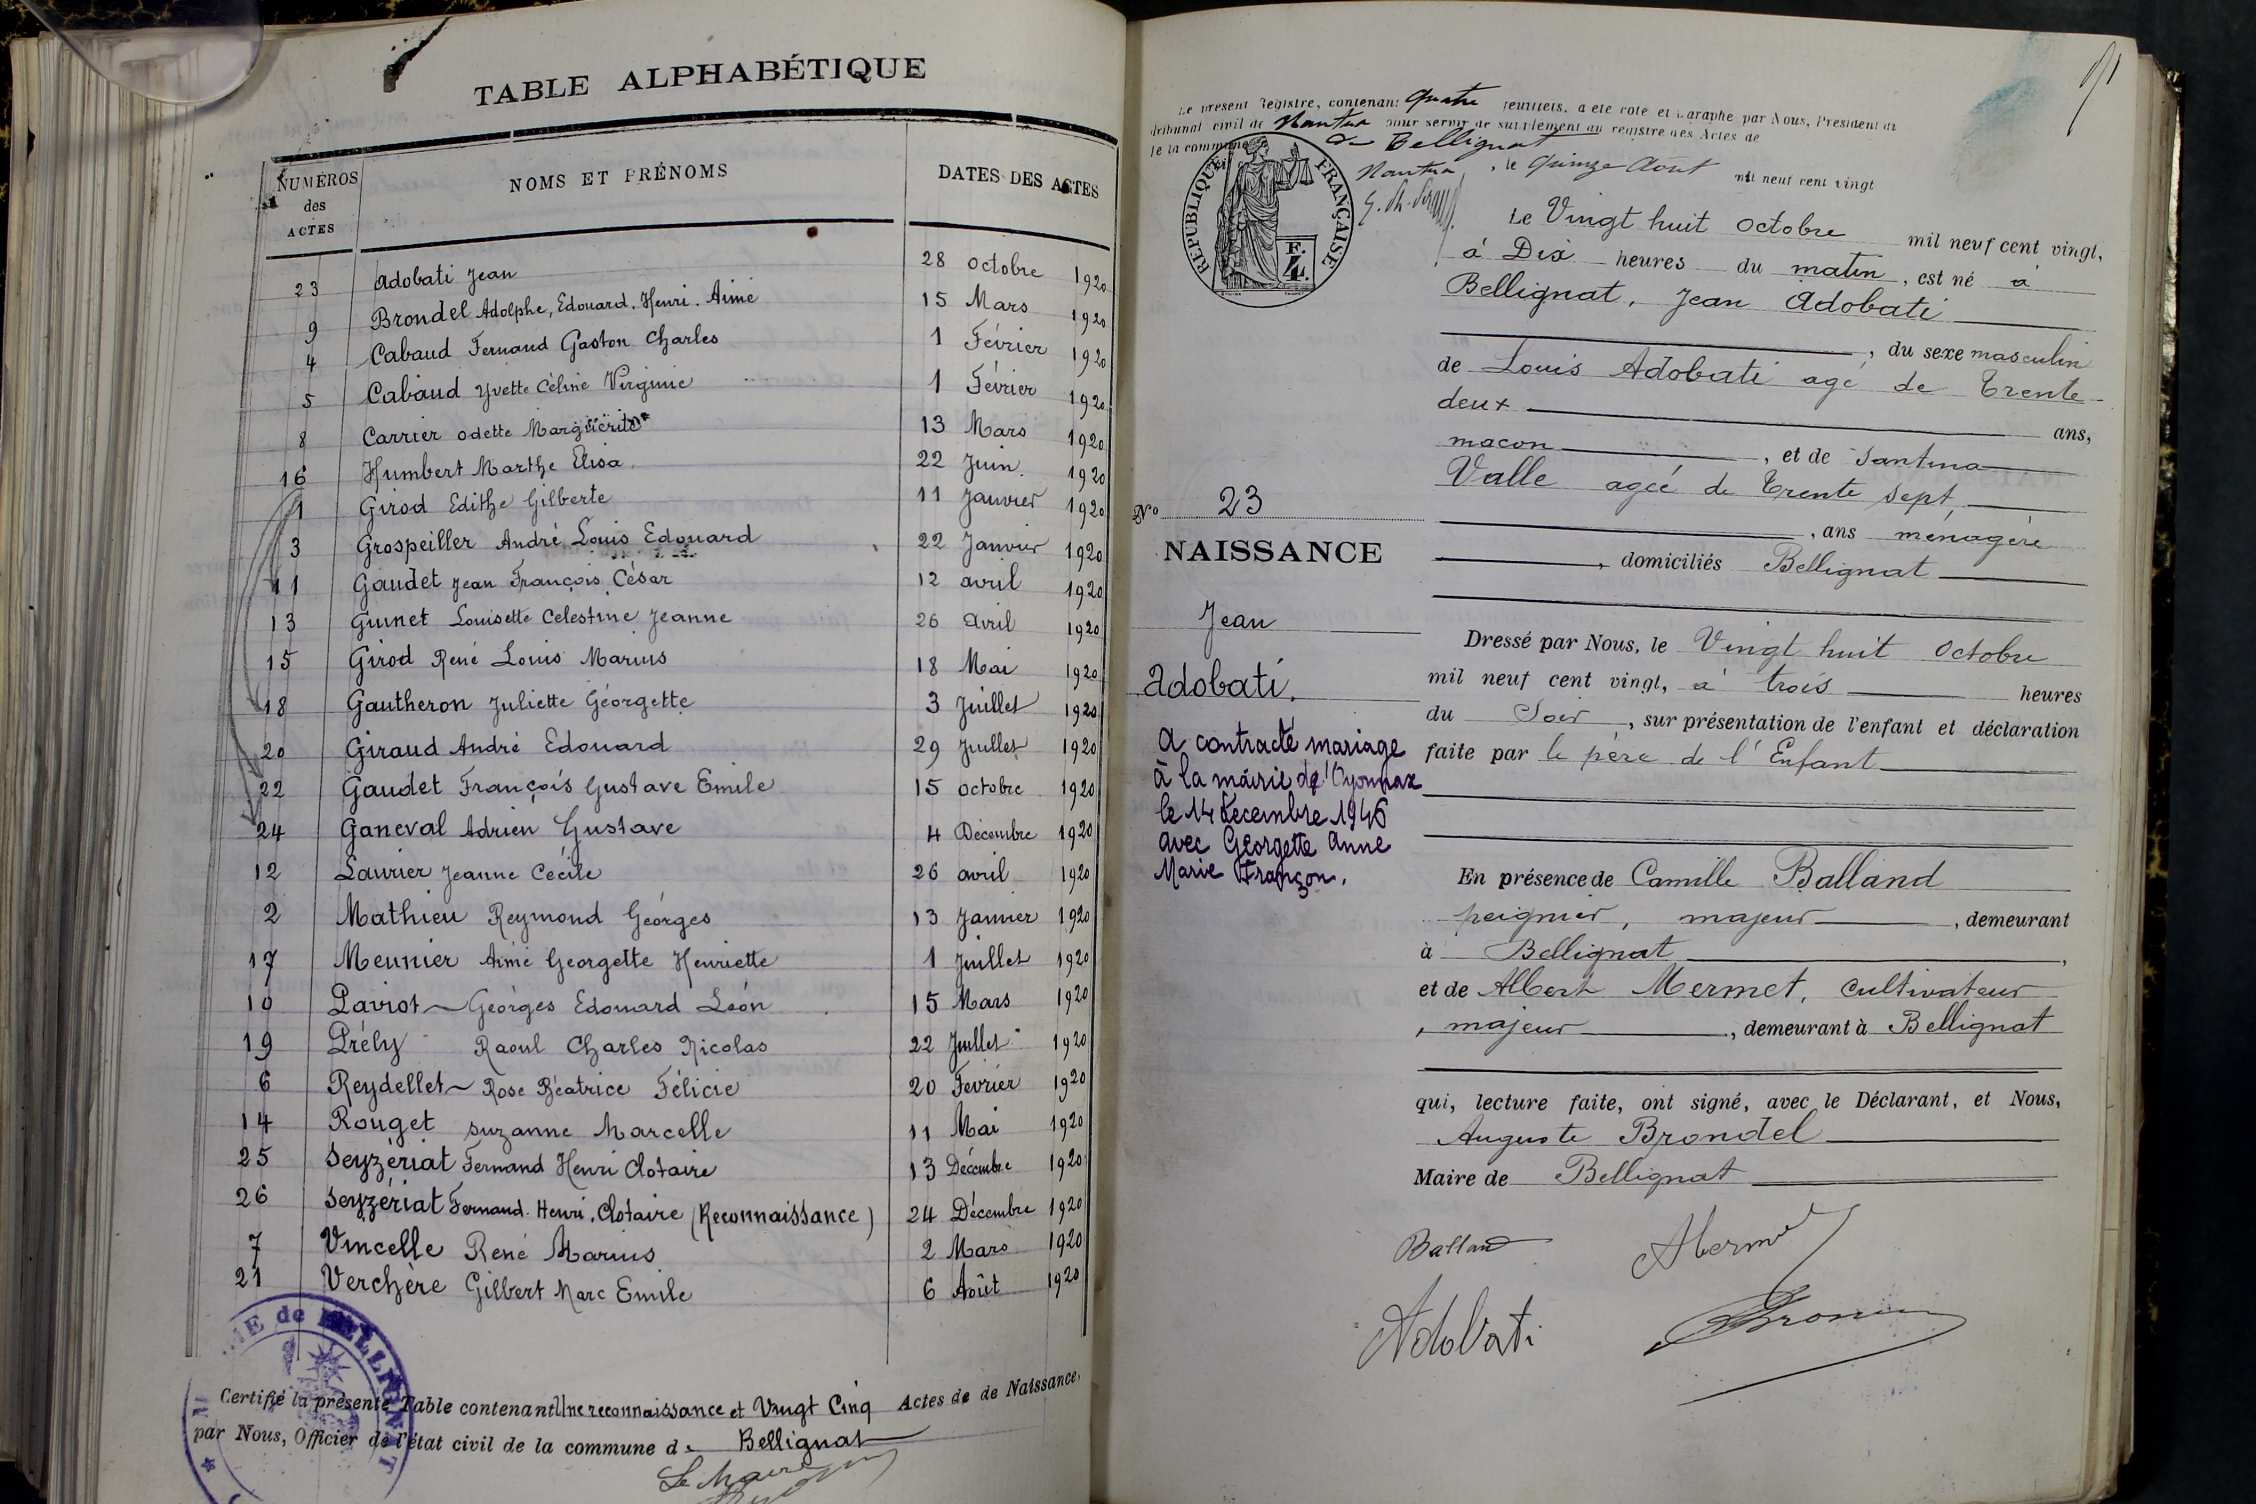 TABLE ALPHABÉTIQUE
NUMÉROS des ACTES NOMS ET PRÉNOMS DATES DES ACTES
23 Adobati Jean 28 octobre 1920
9 Brondel Adolphe, Edouard, Henri, Aimé 15 Mars 1920
4 Cabaud Fernand Gaston Charles 1 Février 1920
5 Cabaud Yvette Céline Virginie 1 Février 1920
8 Carrier Odette Marguerite 13 Mars 1920
16 Humbert Marthe Elisa 22 Juin 1920
1 Girod Edithe Gilberte 11 Janvier 1920
3 Grospeiller André Louis Edouard 22 Janvier 1920
11 Gaudet Jean François César 12 avril 1920
13 Guinet Louisette Celestine Jeanne 26 Avril 1920
15 Girod René Louis Marius 18 Mai 1920
18 Gautheron Juliette Géorgette 3 Juillet 1920
20 Giraud André Edouard 29 Juillet 1920
22 Gaudet François Gustave Emile 15 octobre 1920
24 Ganeval Adrien Gustave 4 Décembre 1920
12 Laurier Jeanne Cécile 26 avril 1920
2 Mathieu Reymond Georges 13 Janvier 1920
17 Meunier Aimé Georgette Henriette 1 Juillet 1920
10 Paviot Georges Edouard Léon 15 Mars 1920
19 Prély Raoul Charles Nicolas 22 Juillet 1920
6 Reydellet Rose Béatrice Félicie 20 Fevrier 1920
14 Rouget Suzanne Marcelle 11 Mai 1920
25 Seyzériat Fernand Henri Clotaire 13 Décembre 1920
26 Seyzériat Fernand Henri, Clotaire (Reconnaissance) 24 Décembre 1920
7 Vincelle René Marius 2 Mars 1920
21 Verchère Gilbert Marc Emile 6 Août 1920
Certifié la présente Table contenant Une reconnaissance et Vingt Cinq Actes de de Naissance,
par Nous, Officier de l'état civil de la commune de Bellignat
Le Maire
de BELLIGNAT
Le présent Registre, contenant quatre feuillets, a été coté et paraphé par Nous, Président du
tribunal civil de Nantua pour servir de supplément au registre des Actes de
de la commune de Bellignat
Nantua, le quinze Aout mil neuf cent vingt
RÉPUBLIQUE FRANÇAISE
F. 4
Le Vingt huit octobre mil neuf cent vingt,
à Dix heures du matin, est né à
Bellignat, Jean Adobati
, du sexe masculin
de Louis Adobati agé de Trente-
deux ans,
macon, et de Santina
Valle agée de Trente sept,
, ans ménagère
, domiciliés Bellignat
Dressé par Nous, le Vingt huit octobre
mil neuf cent vingt, à trois heures
du Soir, sur présentation de l'enfant et déclaration
faite par le père de l'Enfant
En présence de Camille Balland
peignier, majeur, demeurant
à Bellignat,
et de Albert Mermet, cultivateur
, majeur, demeurant à Bellignat
qui, lecture faite, ont signé, avec le Déclarant, et Nous,
Auguste Brondel
Maire de Bellignat
Balland
Adobati
No 23
NAISSANCE
Jean
Adobati.
A contracté mariage
à la mairie d'Oyonnax
le 14 décembre 1946
avec Georgette Anne
Marie Françon.